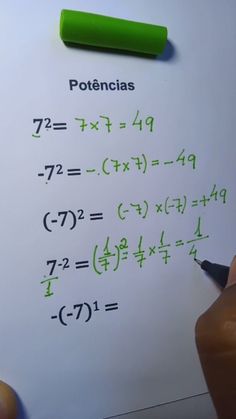 Potências
7² = 7 x 7 = 49
-7² = -(7x7) = -49
(-7)² = (-7) x (-7) = +49
7⁻² = (1/7)² = 1/7 x 1/7 = 1/4
1
-(-7)¹ =